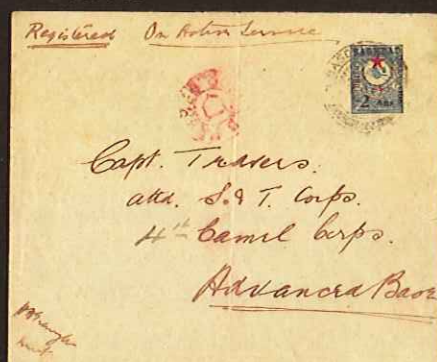 Registered On Active Service
BAGHDAD
2 An
Capt. Travers.
attd. S. & T. Corps.
4th Camel Corps.
Advanced Base